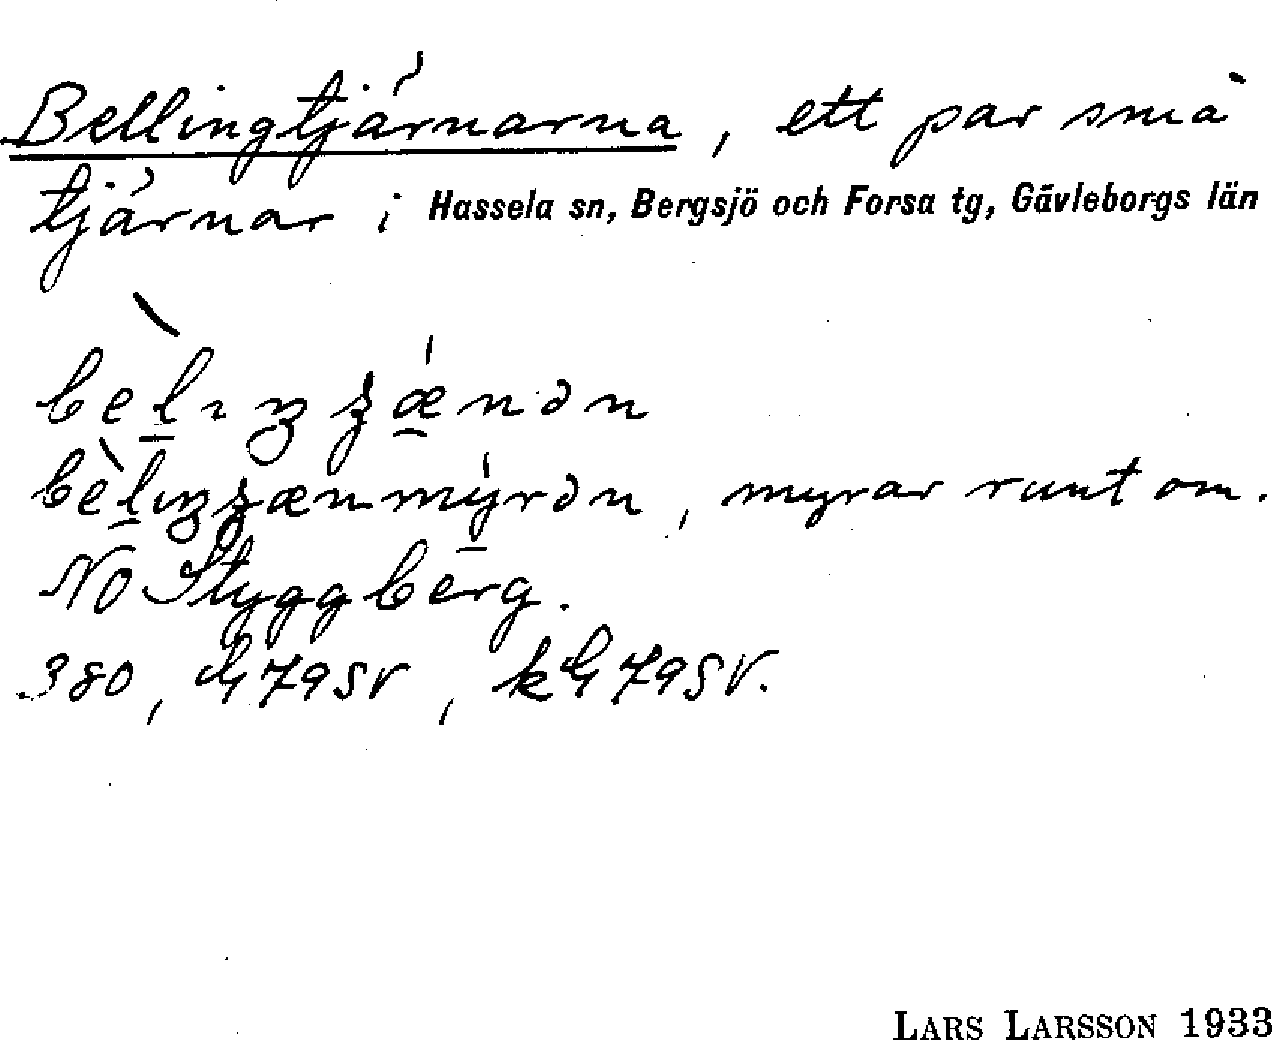 Bellingtjärnarna, ett par små
tjärnar i Hassela sn, Bergsjö och Forsa tg, Gävleborgs län
, myrar runt om.
NO Styggberg.
380, h79SV, kh79SV.
LARS LARSSON 1933